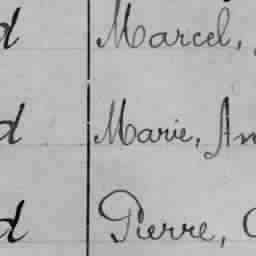 d Marcel,
d Marie, An
d Pierre,